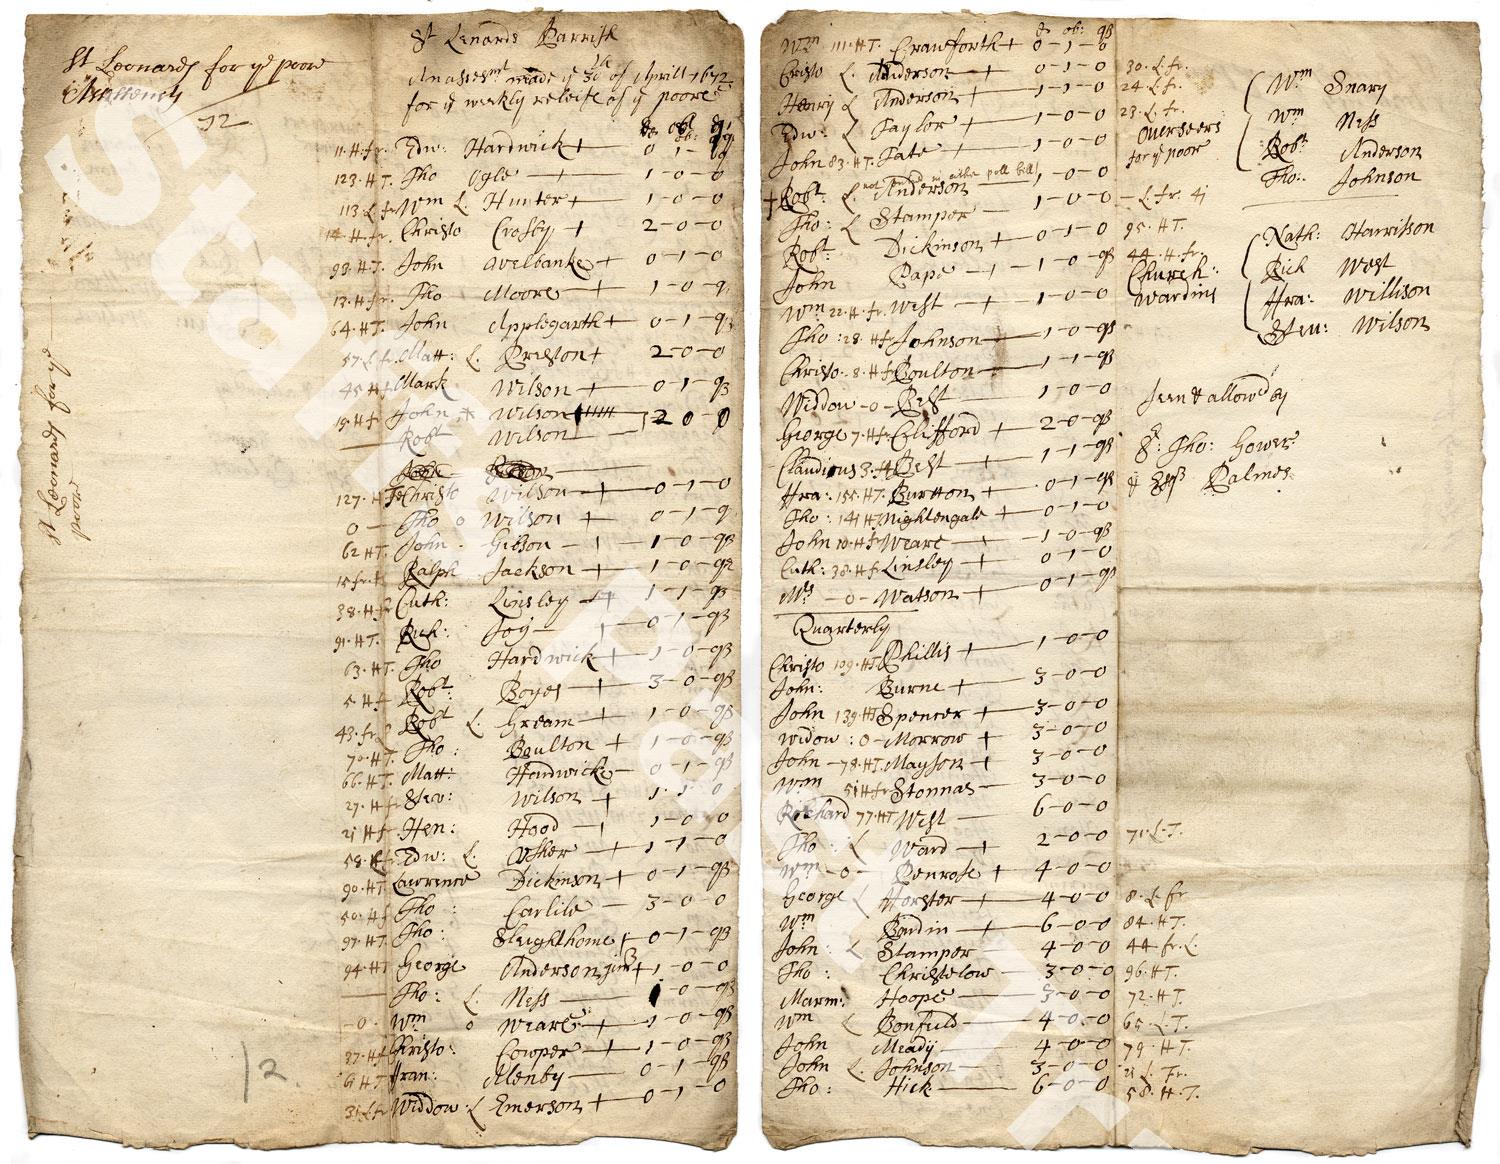 St Leonards for ye poore
Assessemt
72
St Leonards for ye
poore
12
St Lenards Parrish
An assesmt made ye 30th of Aprill 1672
for ye weekly releife of ye poore
d. ob: qs
11. H. fr. Edw: Hardwick + 0-1-qs
123. H T. Tho Ogle + 1-0-0
113 L fr Wm L. Hunter + 1-0-0
14 H. fr. Christo Crosby + 2-0-0
93. H T. John Welbanke + 0-1-0
13. H. fr. Tho Moore + 1-0-q
64. H T. John Applegarth + 0-1-qs
57. L fr. Matt: L. Preston + 2-0-0
45 H f Mark Wilson + 0-1-qs
19. H f John Wilson 2 0-0
Robt Wilson
127. H T Christo Wilson + 0-1-0
0 Tho o Wilson + 0-1-q
62 H T. John Gibson + 1-0-qs
15 fr. Ralph Jackson + 1-0-qs
38. H f Cuth: Linsley + 1-1-qs
91. H T. Rich: Joy 0-1-qs
63. H T. Tho Hardwick + 1-0-qs
5 H f Robt Boyes + 3-0-qs
43. fr. Robt L. Gream + 1-0-qs
70 H T. Tho: Boulton + 1-0-qs
66. H T. Matt: Hardwick 0-1-qs
27. H f Stev: Wilson + 1-1-0
21 H f Hen: Hood + 1-0-0
58. fr Edw: L. Usher + 1-1-0
90. H T. Lawrence Dickinson + 0-1-qs
50. H f Tho: Carlile 3-0-0
97. H T. Tho: Sleighthome 0-1-qs
94. H T George Anderson + 1-0-0
Tho: L. Ness 0-qs
-0- Wm o Weare + 1-0-qs
37. H f Christo: Cowper + 1-0-qs
61 H T Fran: Alenby 0-1-qs
31 L fr Widdow L Emerson + 0-1-0
d. ob: qs
Wm 111. H T. Crawforth + 0-1-0
Cristo L. Anderson + 0-1-0 30. L. fr.
Henry L Anderson + 1-1-0 24. L fr.
Edw: L Taylor + 1-0-0 23. L fr.
John 83. H T. Tate + 1-0-0
Robt L. Anderson 1-0-0 L. fr. 41
Tho: L Stamper 1-0-0 95. H T.
Robt: Dickinson + 0-1-0 44. H. fr.
John Pape 1-1-0-qs
Wm 22. H. fr. West + 1-0-0
Tho: 28. H fr Johnson 1-0-qs
Christo. 8. H f Boulton 1-1-qs
Widdow -0- Best 1-0-0
George 7. H fr Clifford + 2-0-qs
Claudious 3. H f Best + 1-1-qs
Fra: 155. H T. Burtton + 0-1-qs
Tho: 141 H T Nightengale + 0-1-0
John 10. H f Weare 1-0-qs
Cuth: 38. H f Linsley + 0-1-0
Mrs -0- Watson + 0-1-qs
Quarterly
Christo 109. H T. Phillis + 1-0-0
John: Burne + 3-0-0
John 139 H T Spencer + 3-0-0
Widow: 0- Morrow + 3-0-0
John -78. H T. Mayson + 3-0-0
Wm 51 H fr Stonnas 3-0-0
Richard 77. H T West 6-0-0
Tho: L Ward + 2-0-0 71. L. T.
Wm -0- Penrose + 4-0-0
George L Forster + 4-0-0 8. L. fr
Wm Bardin + 6-0-0 84. H T.
John: L Stamper 4-0-0 44. fr. L.
Tho: Christelow 3-0-0 96. H T.
Marm: Hoope 3-0-0 72. H T.
Wm L Bonfield 4-0-0 65. L T.
John Meady 4-0-0 79. H T.
John L. Johnson 3-0-0 21 L. fr.
Tho: Hick 6-0-0 58. H. T.
Overseers
for ye poor
Wm Snary
Wm Ness
Robt Anderson
Tho: Johnson
Church:
Wardins
Nath: Harrison
Rich West
Fra: Willison
Stev: Wilson
Seen & allowed by
Tho: Gower
Palmes